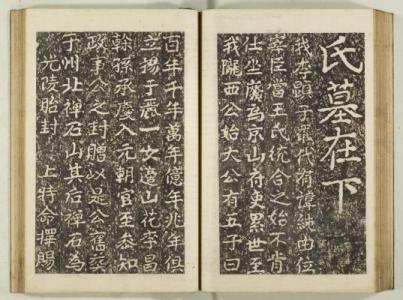 氏墓在下
我李顯于羅代有諱純由位
宰臣當王氏統合之始不肯
仕坐廢爲京山府吏累世至
我隴西公始大公有五子曰
百年千年萬年億年兆年俱
立揚于嚴一女適山花李昌
幹孫承慶入元朝官至叅知
政事公之封贈以是公舊
于州北禪石山其后禪石爲
光陵胎封 上特命擇賜